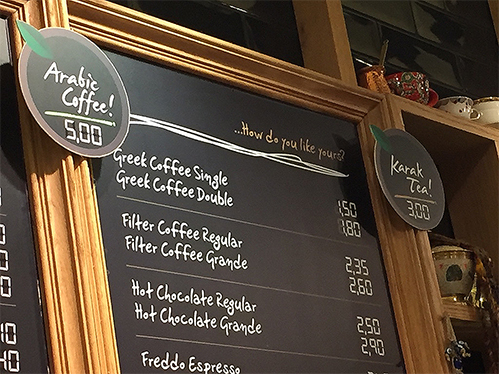 Arabic
Coffee!
5,00
...How do you like yours?
Greek Coffee Single 1,50
Greek Coffee Double 1,80
Filter Coffee Regular 2,35
Filter Coffee Grande 2,60
Hot Chocolate Regular 2,50
Hot Chocolate Grande 2,90
Freddo Espresso
Karak
Tea!
3,00